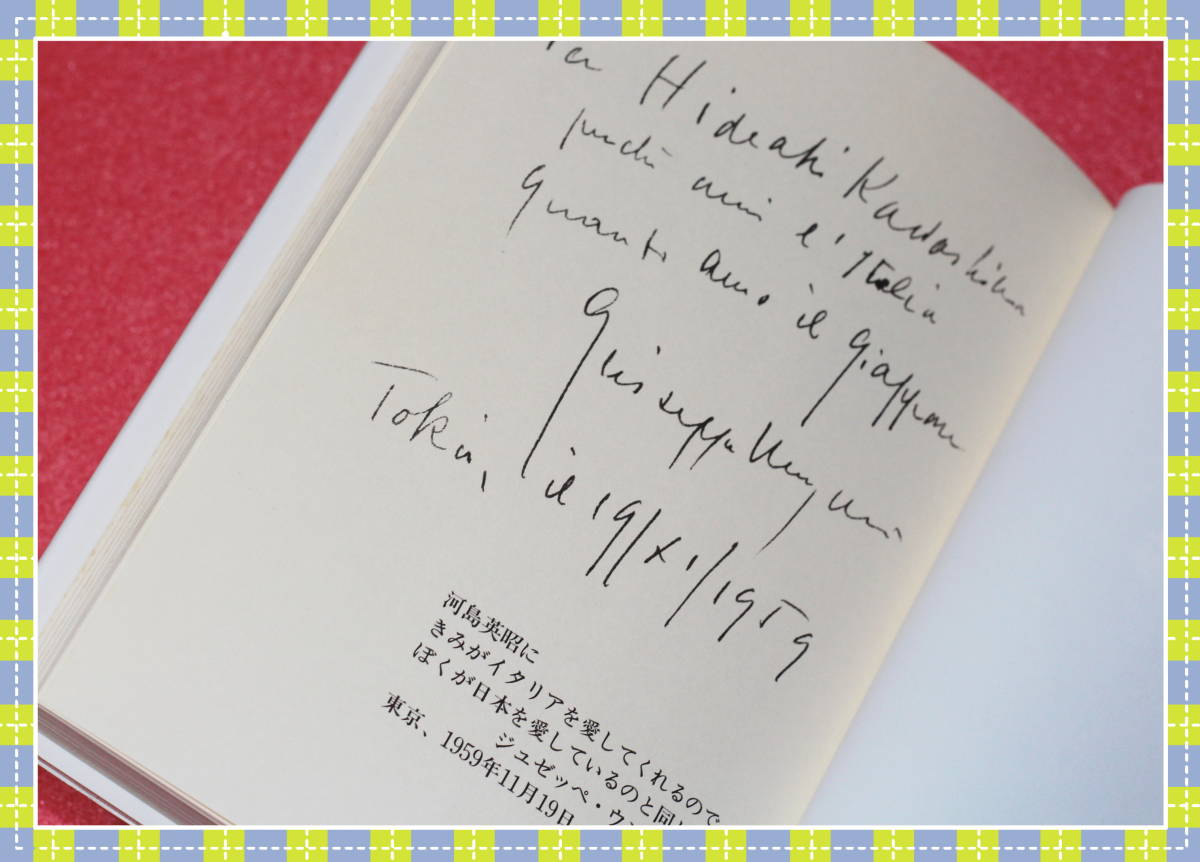 Hideaki Kawashima
perché ami l'Italia
quanto amo il Giappone
Giuseppe Ungaretti
Tokio, il 19/XI/1959
河島英昭に
きみがイタリアを愛してくれるので
ぼくが日本を愛しているのと同じ
ジュゼッペ・ウン
東京、1959年11月19日